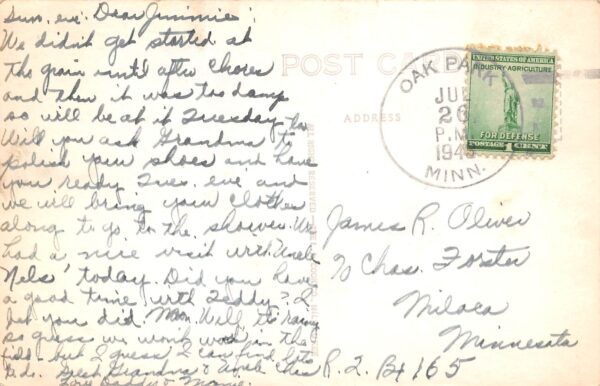 Sun. eve. Dear Jimmie:
We didn't get started at
the grain until after chores
and then it was too damp
so will be at it Tuesday too
Will you ask Grandma to
polish your shoes and have
you ready Tues. eve and
we will bring your clothes
along to go to the shower. We
had a nice visit with Uncle
Nels' today. Did you have
a good time with Teddy? I
bet you did. Mon. Well, it's rainy
so guess we won't work in the
field but I guess I can find lots
to do. Grandma & Uncle Chas
Love Daddy & Mamie
POST CARD
ADDRESS
OAK PARK
JUL
26
P.M.
194
MINN.
UNITED STATES OF AMERICA
INDUSTRY·AGRICULTURE
FOR DEFENSE
POSTAGE 1 CENT
James R. Oliver
% Chas. Forster
Milaca
Minnesota
R. 2. Bx 165